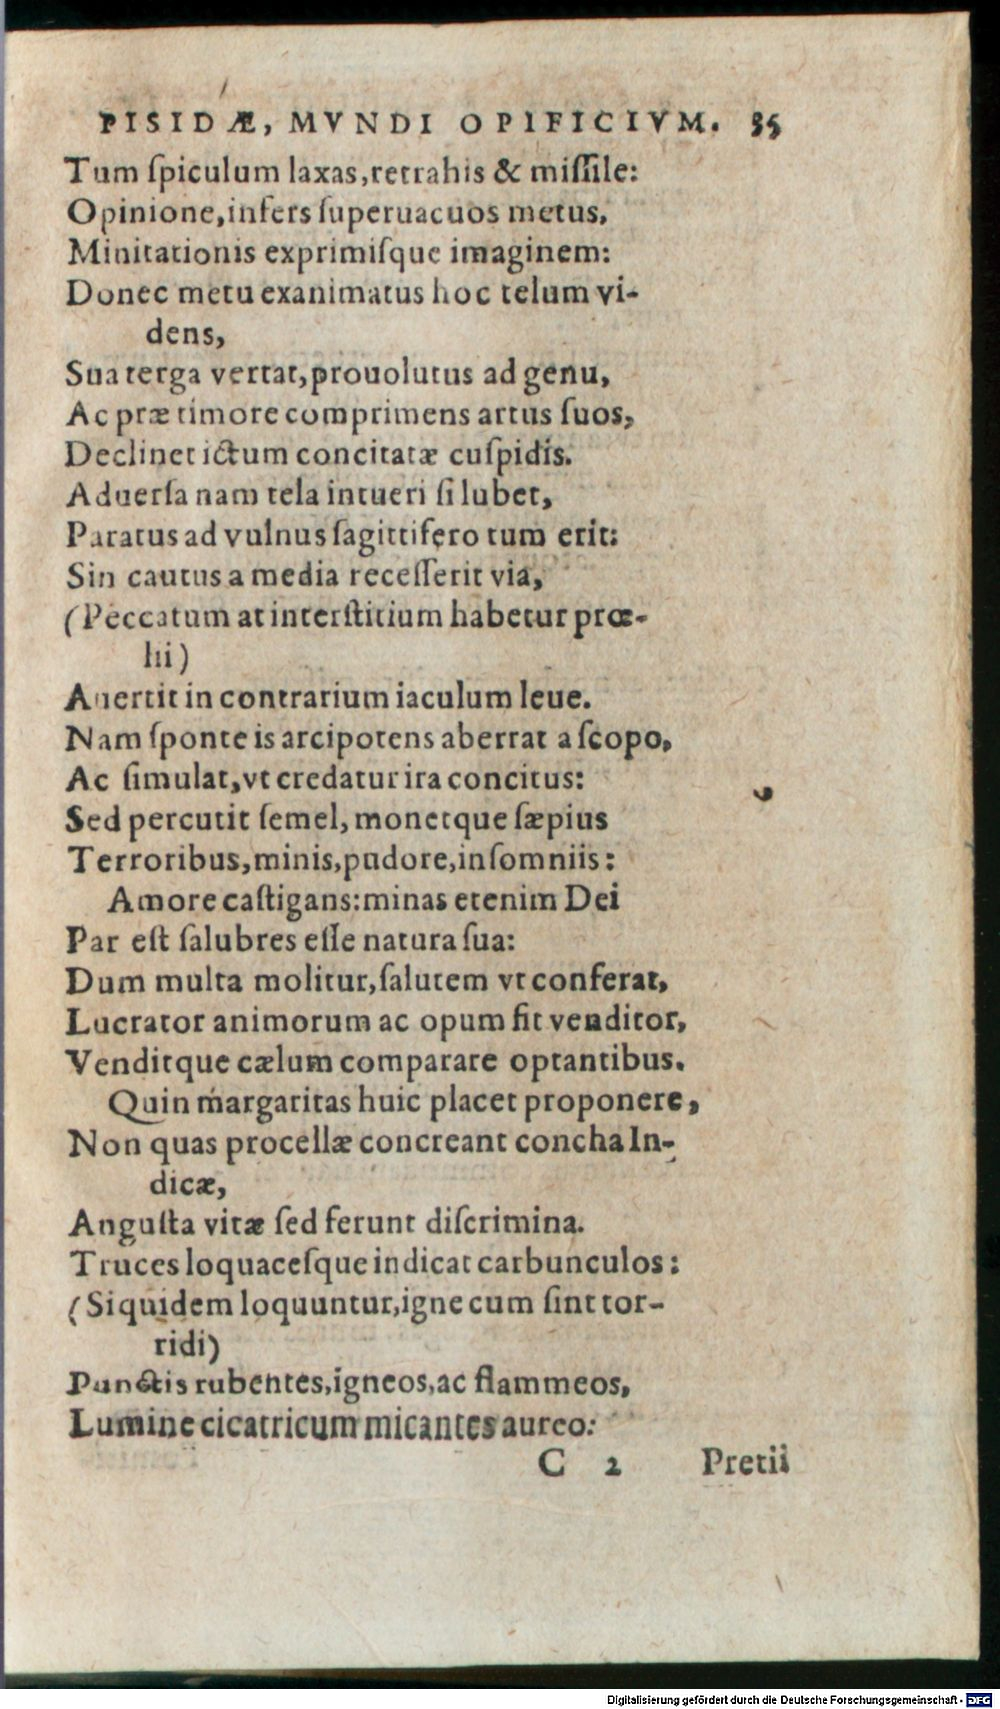 PISIDÆ, MVNDI OPIFICIVM. 35
Tum ſpiculum laxas, retrahis & miſſile:
Opinione, infers ſuperuacuos metus,
Minitationis exprimiſque imaginem:
Donec metu exanimatus hoc telum vi-
dens,
Sua terga vertat, prouolutus ad genu,
Ac præ timore comprimens artus ſuos,
Declinet ictum concitatæ cuſpidis.
Aduerſa nam tela intueri ſi lubet,
Paratus ad vulnus ſagittifero tum erit:
Sin cautus a media receſſerit via,
(Peccatum at interſtitium habetur prœ-
lii)
Auertit in contrarium iaculum leue.
Nam ſponte is arcipotens aberrat a ſcopo,
Ac ſimulat, vt credatur ira concitus:
Sed percutit ſemel, monetque ſæpius
Terroribus, minis, pudore, inſomniis:
Amore caſtigans: minas etenim Dei
Par eſt ſalubres eſſe natura ſua:
Dum multa molitur, ſalutem vt conferat,
Lucrator animorum ac opum fit venditor,
Venditque cælum comparare optantibus.
Quin margaritas huic placet proponere,
Non quas procellæ concreant concha In-
dicæ,
Anguſta vitæ ſed ferunt diſcrimina.
Truces loquaceſque indicat carbunculos:
(Siquidem loquuntur, igne cum ſint tor-
ridi)
Punctis rubentes, igneos, ac flammeos,
Lumine cicatricum micantes aureo:
C 2 Pretii
Digitalisierung gefördert durch die Deutsche Forschungsgemeinschaft - DFG